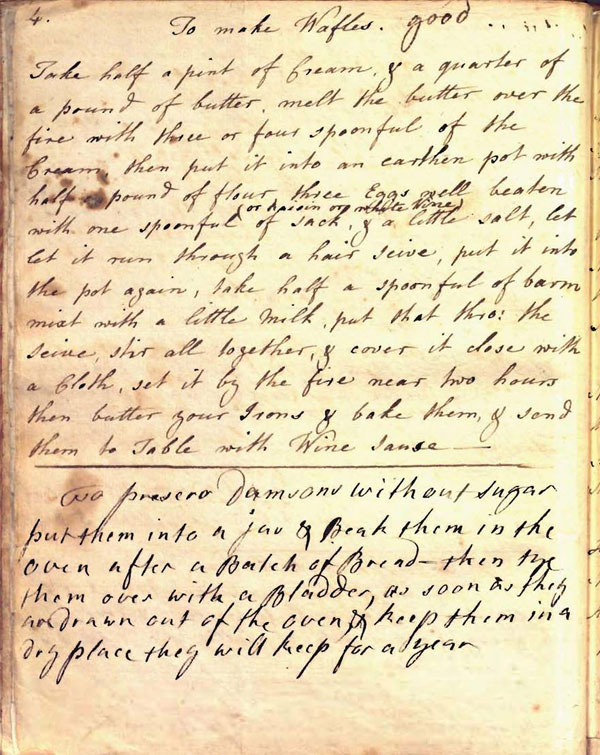 4.
To make Wafles. good
Take half a pint of Cream, & a quarter of
a pound of butter, melt the butter over the
fire with three or four spoonful of the
Cream, then put it into an earthen pot with
half a pound of flour, three Eggs well beaten
(or Raisin or white Wine)
with one spoonful of sack, & a little salt, let
let it run through a hair seive, put it into
the pot again, take half a spoonful of barm
mixt with a little Milk, put that thro: the
seive, stir all together, & cover it close with
a Cloth, set it by the fire near two hours
then butter your Irons & bake them, & send
them to Table with Wine Sause
To preserv Damsons without sugar
put them into a jar & Beak them in the
oven after a Batch of Bread then tye
them over with a Bladder, as soon as they
ar drawn out of the oven, & keep them in a
dry place they will keep for a year